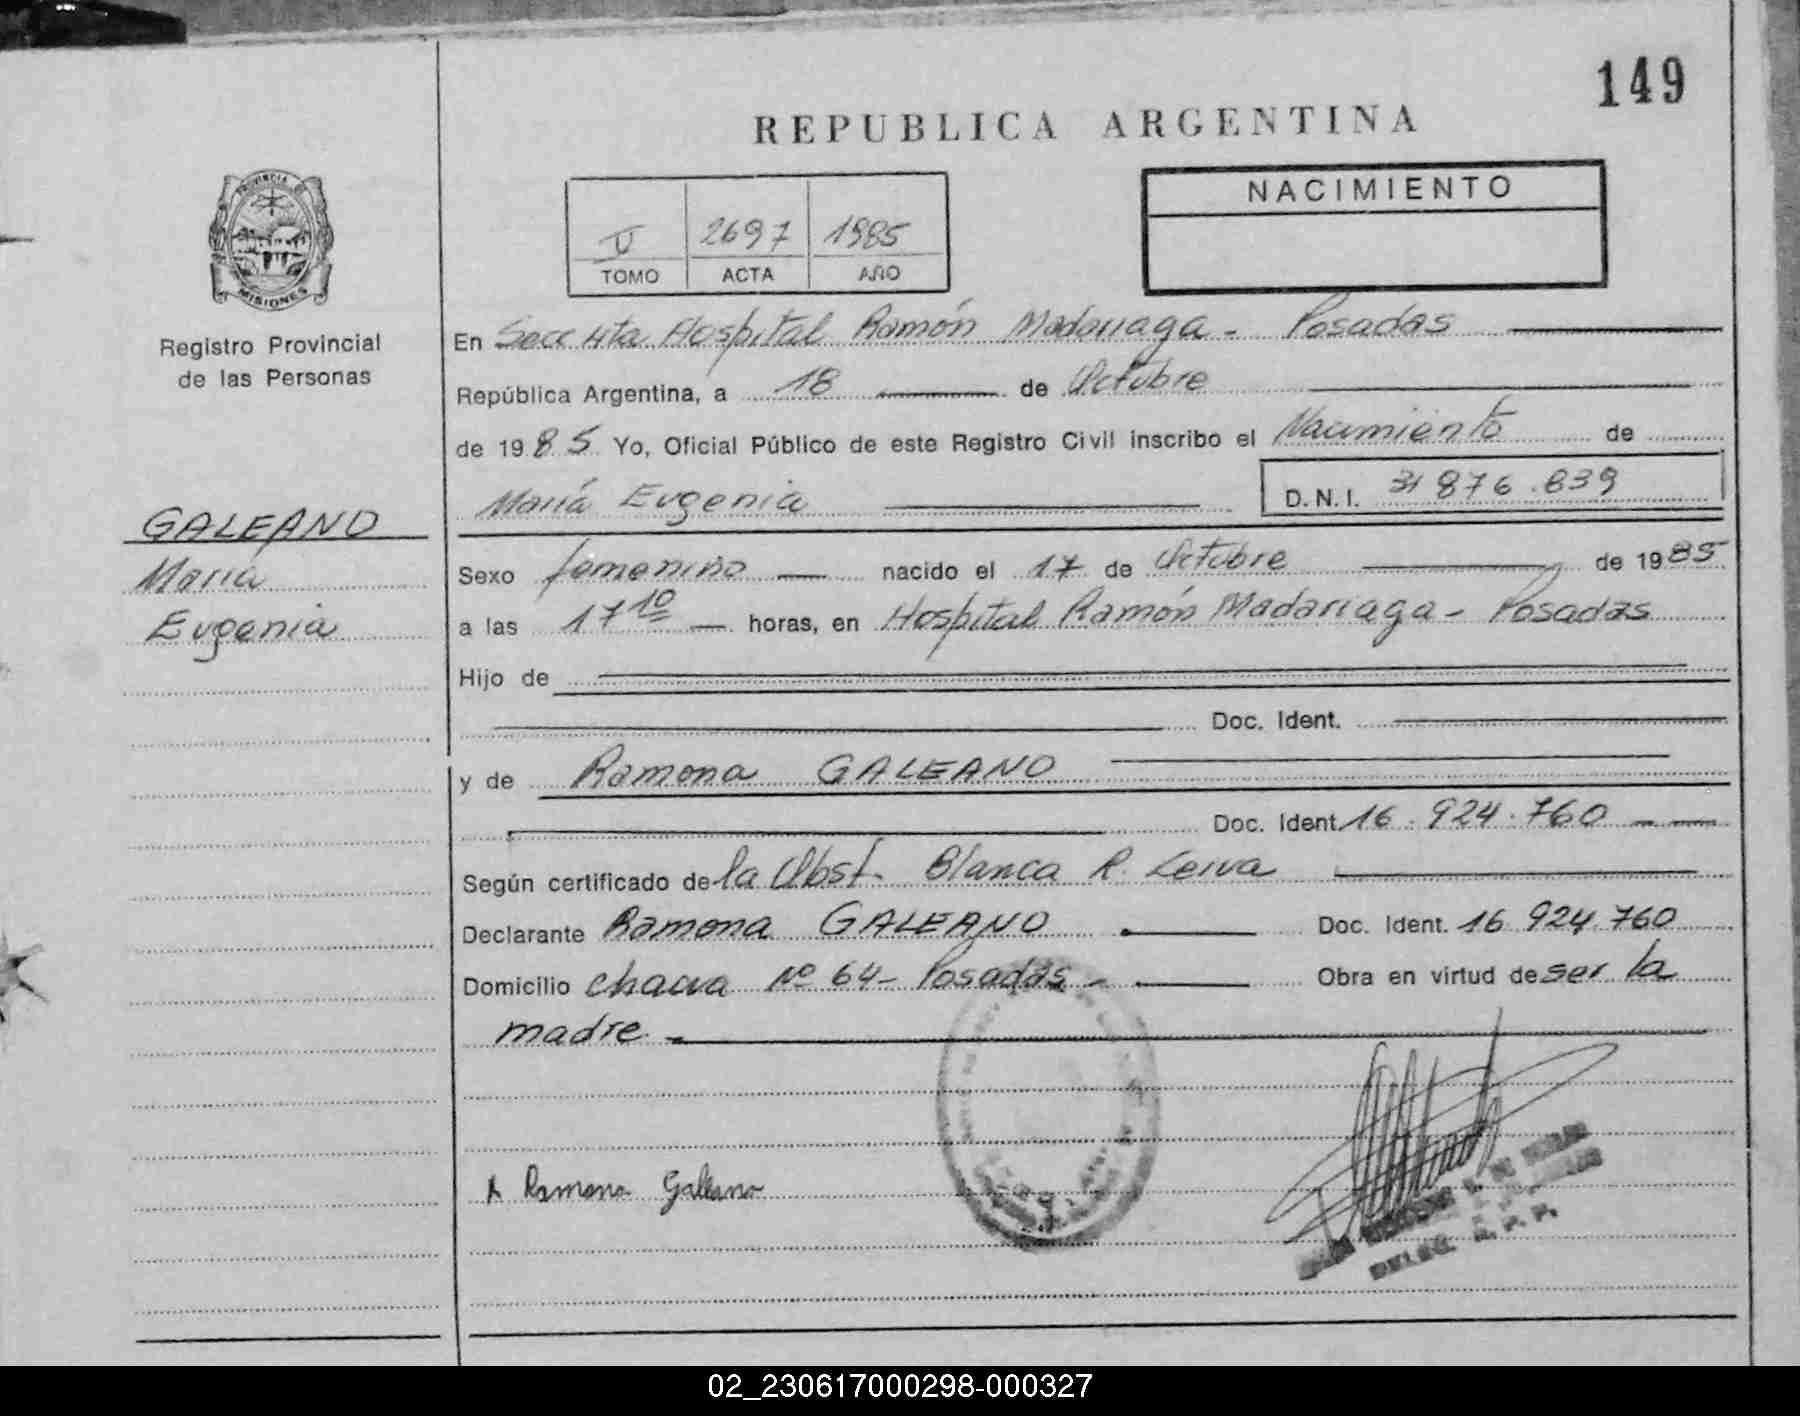 149
REPUBLICA ARGENTINA
PROVINCIA DE
MISIONES
Registro Provincial
de las Personas
V 2697 1985
TOMO ACTA AÑO
NACIMIENTO
En Secc 4ta Hospital Ramón Madariaga - Posadas
República Argentina, a 18 de Octubre
de 1985 Yo, Oficial Público de este Registro Civil inscribo el Nacimiento de
María Eugenia D.N.I. 31 876.839
GALEANO
María
Eugenia
Sexo femenino nacido el 17 de Octubre de 1985
a las 17 10 horas, en Hospital Ramón Madariaga - Posadas
Hijo de
Doc. Ident.
y de Ramona GALEANO
Doc. Ident 16.924.760
Según certificado de la Obst. Blanca R. Leiva
Declarante Ramona GALEANO Doc. Ident. 16.924.760
Domicilio chacra Nº 64 - Posadas - Obra en virtud de ser la
madre -
Ramona Galeano
DELEG. R. P. P.
02_230617000298-000327